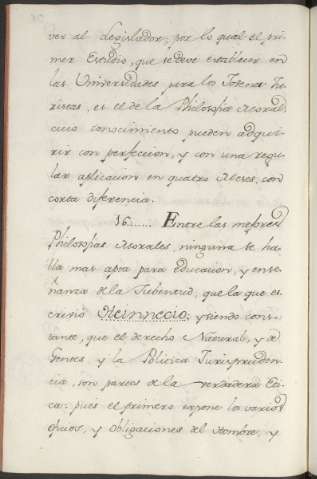 ver al Legislador, por lo qual el pri-
mer Estudio, que se deve establecer en
las Universidades para los Jobenes Ju-
ristas, es el de la Philosofia Moral,
cuio conocimiento pueden adqui-
rir con perfeccion, y con una regu-
lar aplicacion en quatro Meses, con
corta diferencia.
16...... Entre las mejores
Philosofias Morales, ninguna se ha-
lla mas apta para educacion, y ense-
ñanza de la Jubentud, que la que es-
crivió Heinnecio; y siendo cons-
tante, que el derecho Natural, y de
Gentes, y la Politica Jurispruden-
cia, son partes de la verdadera Eti-
ca: pues el primero expone los varios
oficios, y obligaciones del Hombre, y